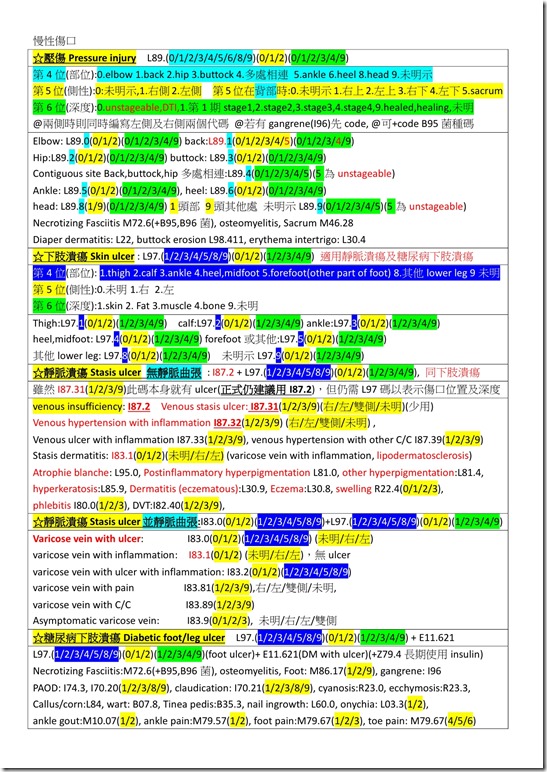 慢性傷口
☆壓傷 Pressure injury L89.(0/1/2/3/4/5/6/8/9)(0/1/2)(0/1/2/3/4/9)
第 4 位(部位):0.elbow 1.back 2.hip 3.buttock 4.多處相連 5.ankle 6.heel 8.head 9.未明示
第 5 位(側性):0:未明示,1.右側 2.左側 第 5 位在背部時:0.未明示 1.右上 2.左上 3.右下 4.左下 5.sacrum
第 6 位(深度):0.unstageable,DTI,1.第 1 期 stage1,2.stage2,3.stage3,4.stage4,9.healed,healing,未明
@兩側時則同時編寫左側及右側兩個代碼 @若有 gangrene(I96)先 code, @可+code B95 菌種碼
Elbow: L89.0(0/1/2)(0/1/2/3/4/9) back:L89.1(0/1/2/3/4/5)(0/1/2/3/4/9)
Hip:L89.2(0/1/2)(0/1/2/3/4/9) buttock: L89.3(0/1/2)(0/1/2/3/4/9)
Contiguous site Back,buttock,hip 多處相連:L89.4(0/1/2/3/4/5)(5 為 unstageable)
Ankle: L89.5(0/1/2)(0/1/2/3/4/9), heel: L89.6(0/1/2)(0/1/2/3/4/9)
head: L89.8(1/9)(0/1/2/3/4/9) 1 頭部 9 頭其他處 未明示 L89.9(0/1/2/3/4/5)(5 為 unstageable)
Necrotizing Fasciitis M72.6(+B95,B96 菌), osteomyelitis, Sacrum M46.28
Diaper dermatitis: L22, buttock erosion L98.411, erythema intertrigo: L30.4
☆下肢潰瘍 Skin ulcer : L97.(1/2/3/4/5/8/9)(0/1/2)(1/2/3/4/9) 適用靜脈潰瘍及糖尿病下肢潰瘍
第 4 位(部位): 1.thigh 2.calf 3.ankle 4.heel,midfoot 5.forefoot(other part of foot) 8.其他 lower leg 9 未明
第 5 位(側性):0.未明 1.右 2.左
第 6 位(深度):1.skin 2. Fat 3.muscle 4.bone 9.未明
Thigh:L97.1(0/1/2)(1/2/3/4/9) calf:L97.2(0/1/2)(1/2/3/4/9) ankle:L97.3(0/1/2)(1/2/3/4/9)
heel,midfoot: L97.4(0/1/2)(1/2/3/4/9) forefoot 或其他:L97.5(0/1/2)(1/2/3/4/9)
其他 lower leg: L97.8(0/1/2)(1/2/3/4/9) 未明示 L97.9(0/1/2)(1/2/3/4/9)
☆靜脈潰瘍 Stasis ulcer 無靜脈曲張 : I87.2 + L97.(1/2/3/4/5/8/9)(0/1/2)(1/2/3/4/9), 同下肢潰瘍
雖然 I87.31(1/2/3/9)此碼本身就有 ulcer(正式仍建議用 I87.2)，但仍需 L97 碼以表示傷口位置及深度
venous insufficiency: I87.2 Venous stasis ulcer: I87.31(1/2/3/9)(右/左/雙側/未明)(少用)
Venous hypertension with inflammation I87.32(1/2/3/9) (右/左/雙側/未明) ,
Venous ulcer with inflammation I87.33(1/2/3/9), venous hypertension with other C/C I87.39(1/2/3/9)
Stasis dermatitis: I83.1(0/1/2)(未明/右/左) (varicose vein with inflammation, lipodermatosclerosis)
Atrophie blanche: L95.0, Postinflammatory hyperpigmentation L81.0, other hyperpigmentation:L81.4,
hyperkeratosis:L85.9, Dermatitis (eczematous):L30.9, Eczema:L30.8, swelling R22.4(0/1/2/3),
phlebitis I80.0(1/2/3), DVT:I82.40(1/2/3/9),
☆靜脈潰瘍 Stasis ulcer 並靜脈曲張:I83.0(0/1/2)(1/2/3/4/5/8/9)+L97.(1/2/3/4/5/8/9)(0/1/2)(1/2/3/4/9)
Varicose vein with ulcer: I83.0(0/1/2)(1/2/3/4/5/8/9) (未明/右/左)
varicose vein with inflammation: I83.1(0/1/2) (未明/右/左)，無 ulcer
varicose vein with ulcer with inflammation: I83.2(0/1/2)(1/2/3/4/5/8/9)
varicose vein with pain I83.81(1/2/3/9),右/左/雙側/未明,
varicose vein with C/C I83.89(1/2/3/9)
Asymptomatic varicose vein: I83.9(0/1/2/3), 未明/右/左/雙側
☆糖尿病下肢潰瘍 Diabetic foot/leg ulcer L97.(1/2/3/4/5/8/9)(0/1/2)(1/2/3/4/9) + E11.621
L97.(1/2/3/4/5/8/9)(0/1/2)(1/2/3/4/9)(foot ulcer)+ E11.621(DM with ulcer)(+Z79.4 長期使用 insulin)
Necrotizing Fasciitis:M72.6(+B95,B96 菌), osteomyelitis, Foot: M86.17(1/2/9), gangrene: I96
PAOD: I74.3, I70.20(1/2/3/8/9), claudication: I70.21(1/2/3/8/9), cyanosis:R23.0, ecchymosis:R23.3,
Callus/corn:L84, wart: B07.8, Tinea pedis:B35.3, nail ingrowth: L60.0, onychia: L03.3(1/2),
ankle gout:M10.07(1/2), ankle pain:M79.57(1/2), foot pain:M79.67(1/2/3), toe pain: M79.67(4/5/6)